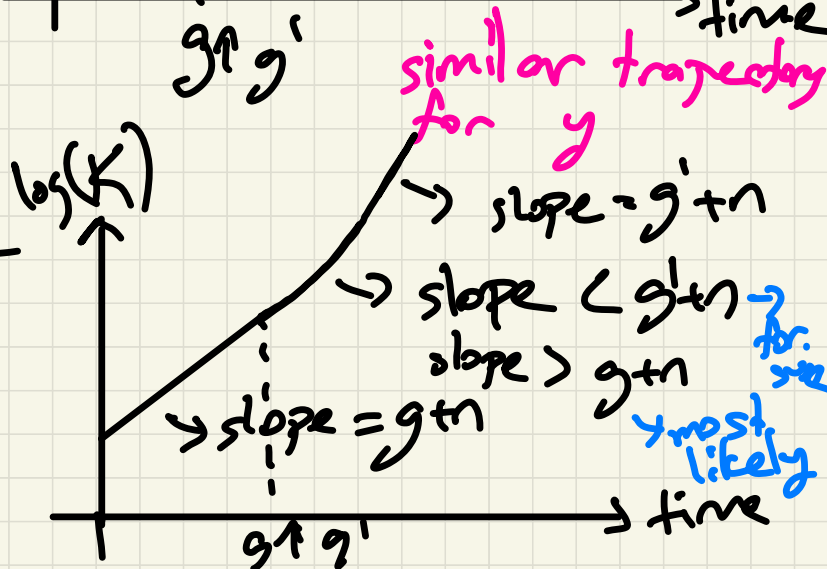 time
g↑ g'
similar trajectory
for y
log(K)
slope = g'+n
slope < g'+n → for sure
slope > g+n
→ most likely
→ slope = g+n
time
g↑ g'